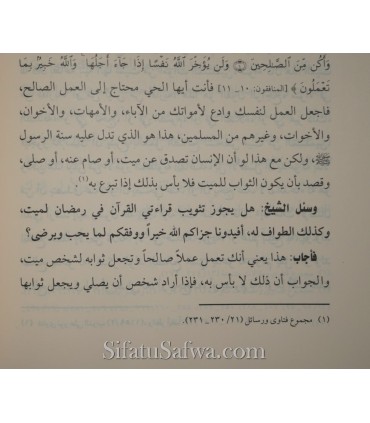 وَأَكُن مِّنَ الصَّٰلِحِينَ ۝ وَلَن يُؤَخِّرَ اللَّهُ نَفْسًا إِذَا جَآءَ أَجَلُهَا وَاللَّهُ خَبِيرٌۢ بِمَا
تَعْمَلُونَ ﴾ [المنافقون: ١٠ ـ ١١] فأنت أيها الحي محتاج إلى العمل الصالح،
فاجعل العمل لنفسك وادع لأمواتك من الآباء، والأمهات، والأخوان،
والأخوات، وغيرهم من المسلمين، هذا هو الذي تدل عليه سنة الرسول
ﷺ، ولكن مع هذا لو أن الإنسان تصدق عن ميت، أو صام عنه، أو صلى،
وقصد بأن يكون الثواب للميت فلا بأس بذلك إذا تبرع به(١).
وسئل الشيخ: هل يجوز تثويب قراءتي القرآن في رمضان لميت،
وكذلك الطواف له، أفيدونا جزاكم الله خيراً ووفقكم لما يحب ويرضى؟
فأجاب: هذا يعني أنك تعمل عملاً صالحاً وتجعل ثوابه لشخص ميت،
والجواب أن ذلك لا بأس به، فإذا أراد شخص أن يصلي ويجعل ثوابها
(١) مجموع فتاوى ورسائل (٢١/ ٢٣٠ ـ ٢٣١).
SifatuSafwa.com